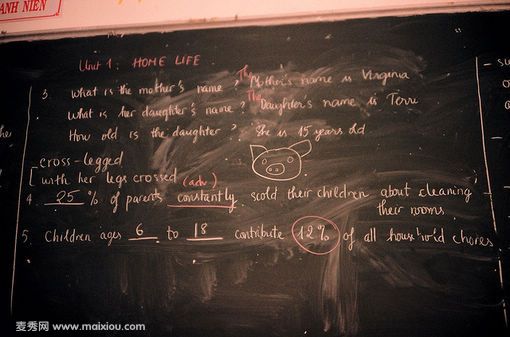 ANH NIÊN
Unit 1: HOME LIFE
3. What is the mother's name? The Mother's name is Virginia
What is her daughter's name? The Daughter's name is Terri
How old is the daughter? She is 15 years old
cross-legged
with her legs crossed (adv)
4. 25 % of parents constantly scold their children about cleaning
their rooms
5. Children ages 6 to 18 contribute 12% of all household chores
he
麦秀网 www.maixiou.com